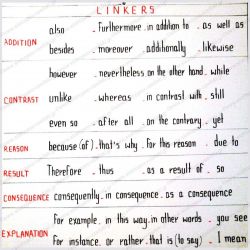 LINKERS
ADDITION
also - Furthermore - in addition to - as well as
besides - moreover - additionally - likewise
CONTRAST
however - nevertheless - on the other hand - while
unlike - whereas - in contrast with - still
even so - after all - on the contrary - yet
REASON because (of) - that's why - for this reason - due to
RESULT Therefore - thus - as a result of - so
CONSEQUENCE consequently - in consequence - as a consequence
EXPLANATION
For example - in this way - in other words - you see
For instance - or rather - that is (to say) - I mean